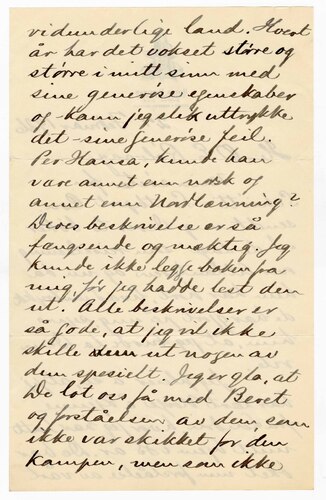 vidunderlige land. Hvert
år har det vokset større og
større i mitt sinn med
sine generøse egenskaber
og – kann jeg slik uttrykke
det – sine generøse feil.
Per Hansa, kunde han
være annet enn norsk og
annet enn Nordlænning?
Deres beskrivelse er så
fængsende og mæktig. Jeg
kunde ikke legge boken fra
mig, før jeg hadde lest den
ut. Alle beskrivelser er
så gode, at jeg vil ikke
skille ut nogen av
dem spesielt. Jeg er gla, at
De lot oss få med Beret
og forståelsen av dem, som
ikke var skikket for den
kampen, men som ikke